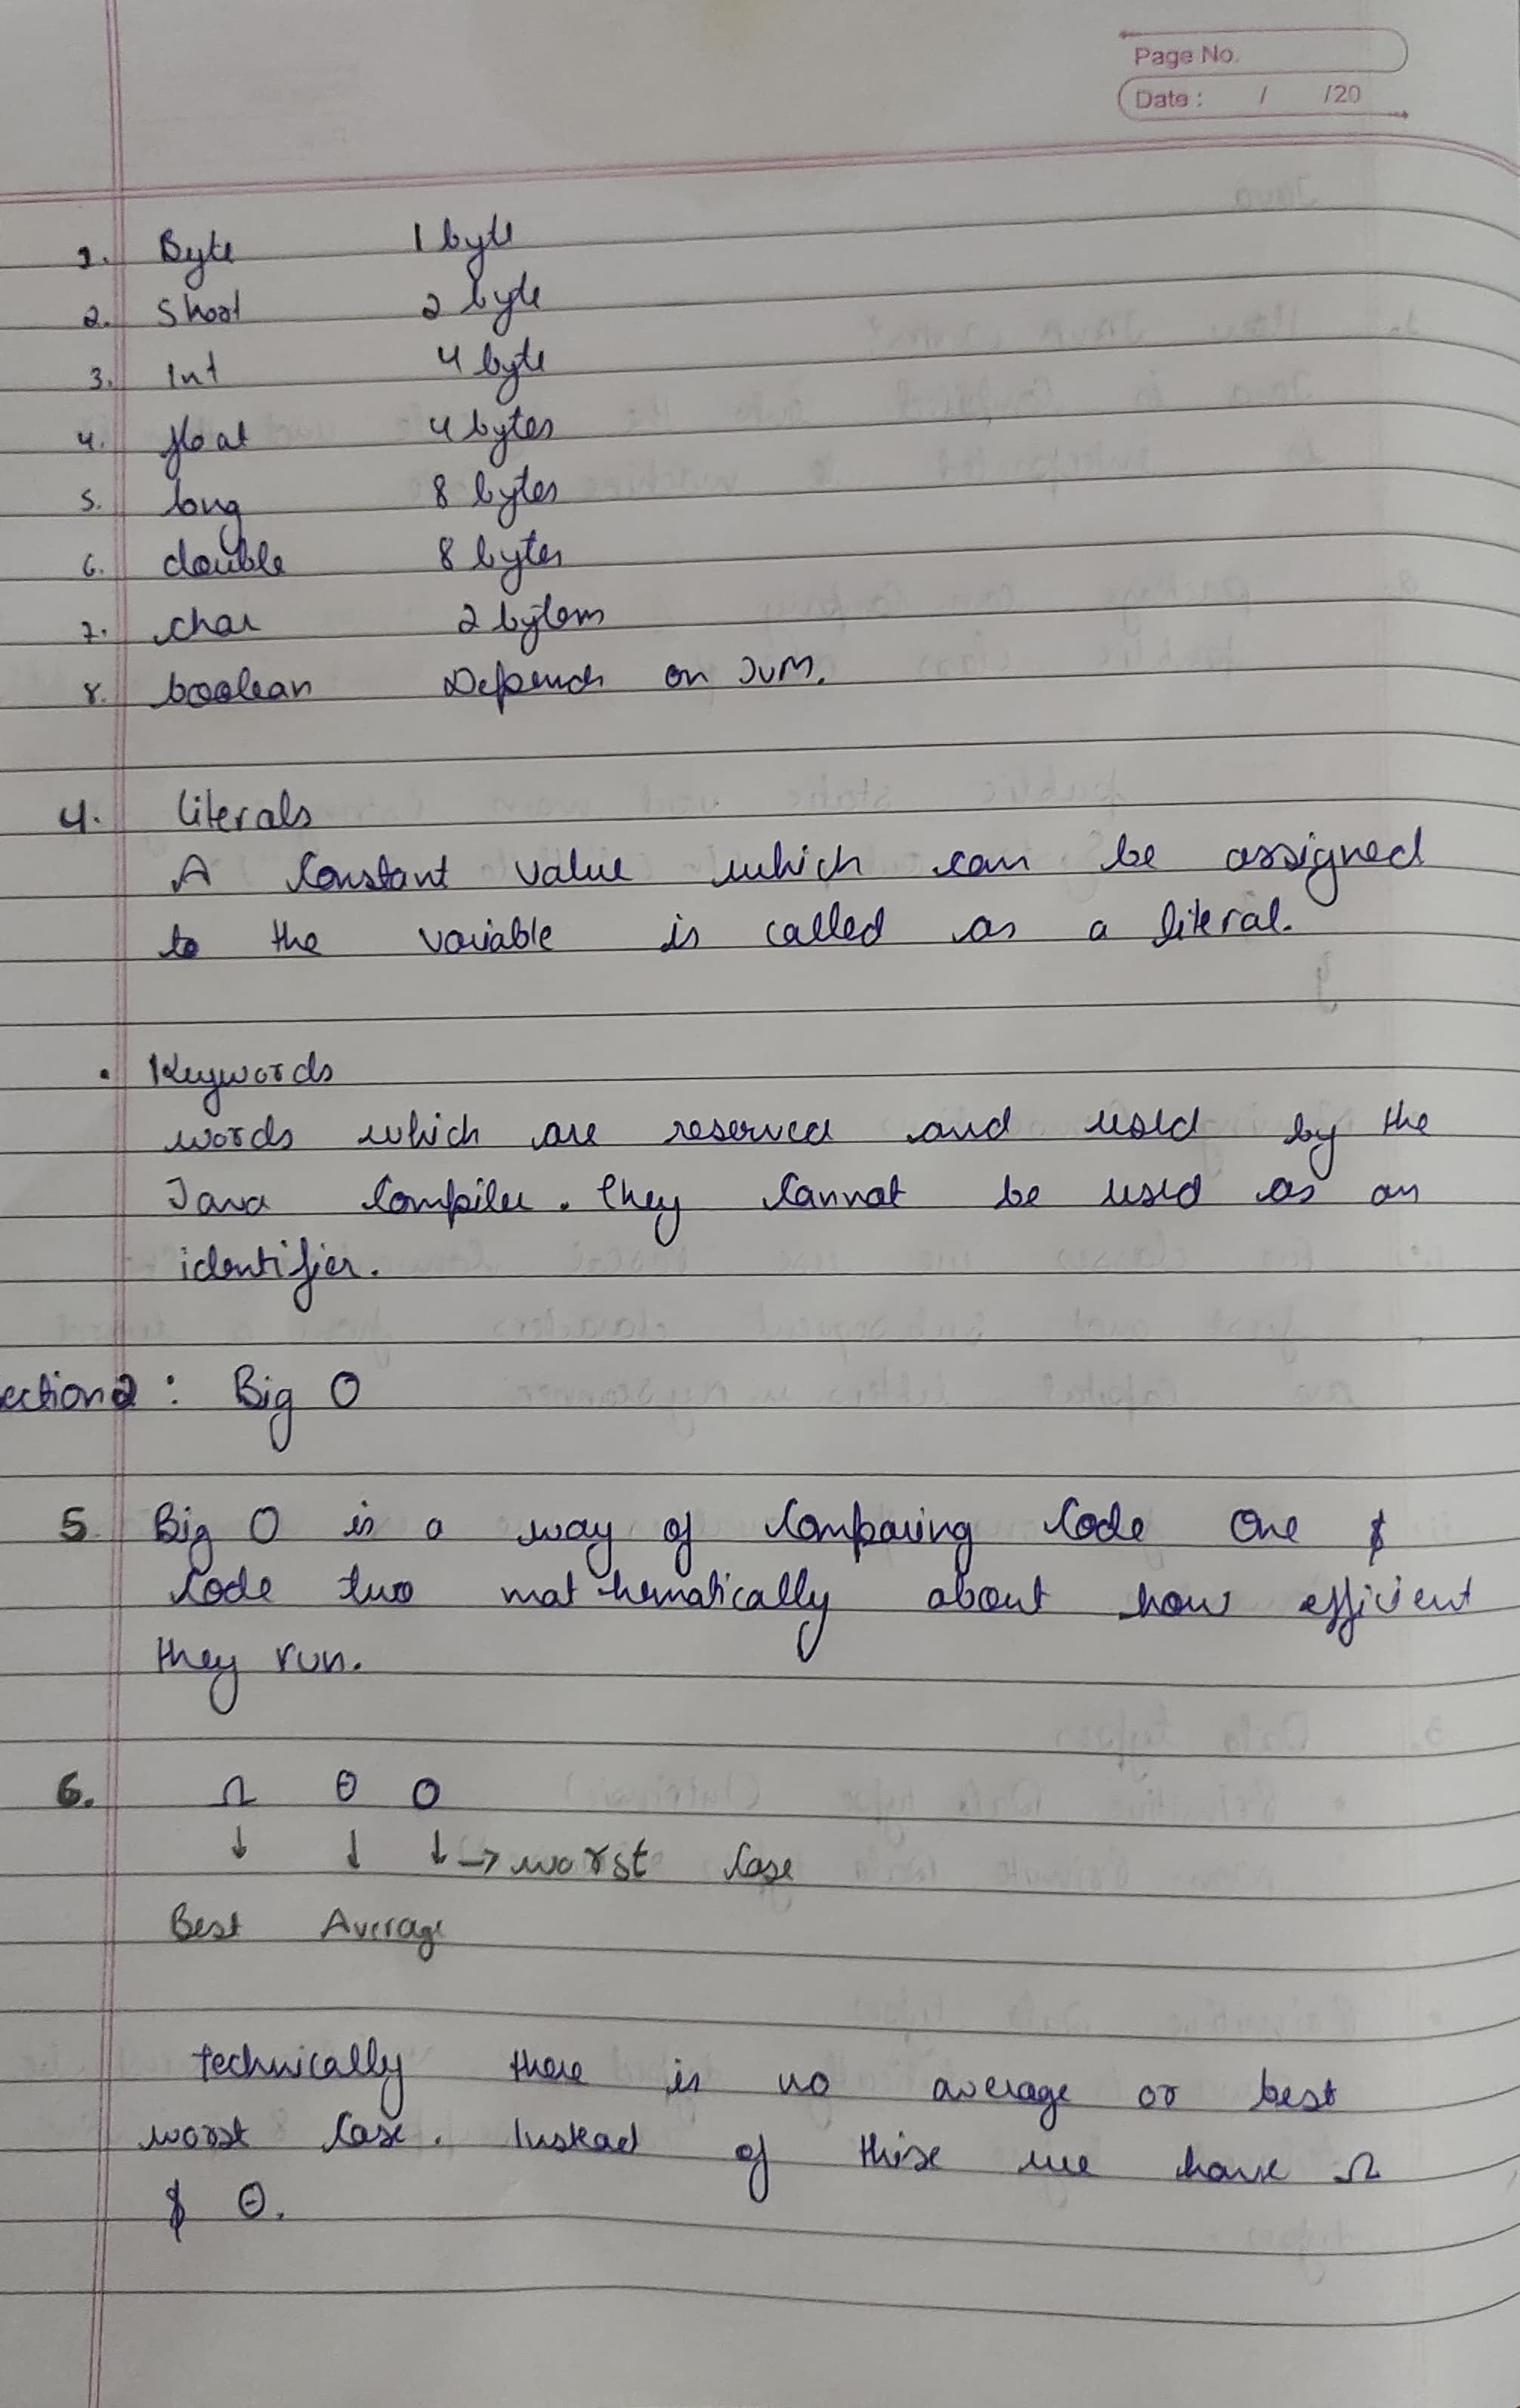 Page No.
Date : / /20
1. Byte 1 byte
2. Short 2 byte
3. Int 4 byte
4. float 4 bytes
5. long 8 bytes
6. double 8 bytes
7. char 2 bytes
8. boolean Depends on JVM.
4. literals
A constant value which can be assigned
to the variable is called as a literal.
• Keywords
words which are reserved and used by the
Java compiler. They cannot be used as an
identifier.
ection 2 : Big O
5 Big O is a way of comparing code one &
code two mathematically about how efficient
they run.
6. Ω Θ O
↓ ↓ ↓ → worst case
Best Average
technically there is no average or best
worst case. Instead of these we have Ω
& Θ.